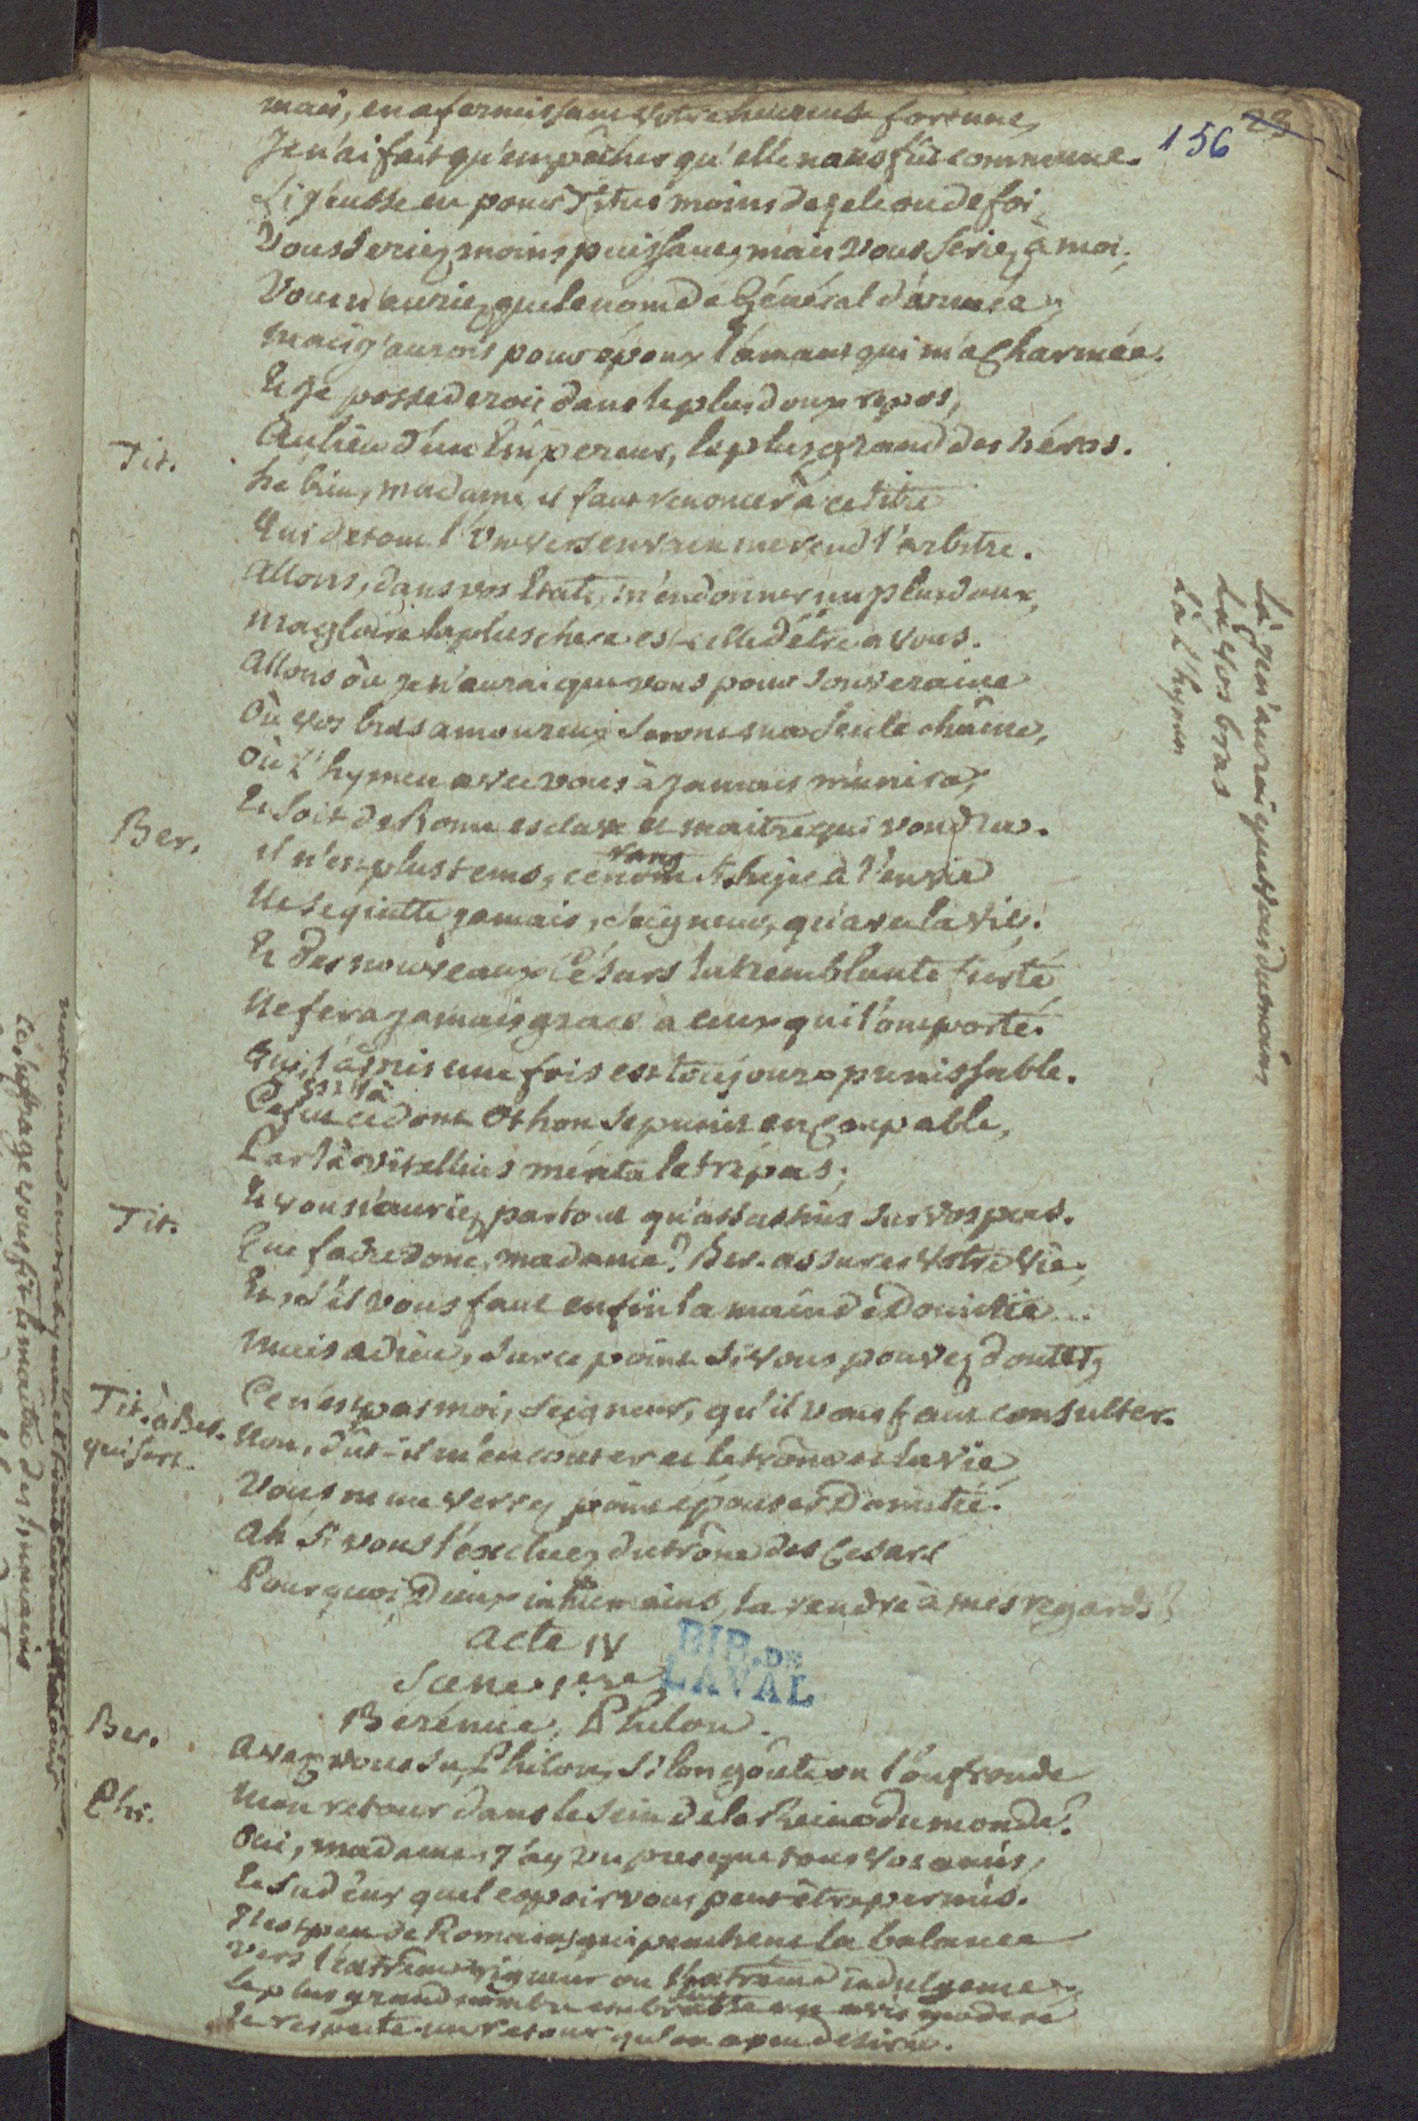 156 23
mais, en afermissant votre heureuse fortune,
Je n'ai fait qu'empêcher qu'elle nous fût commune.
Si j'eusse eu pour Titus moins de zele ou de foi,
Vous seriez moins puissant, mais vous seriez à moi;
Vous n'auriez que le nom de Général d'armée,
mais j'aurois pour époux l'amant qui m'a charmée.
Et je possederois dans le plus doux repos,
Au lieu d'un Empereur, le plus grand des héros.
Tit. hé bien, madame, il faut renoncer à ce titre
Qui de toute l'Univers en vain me rend l'arbitre.
Allons, dans vos Etats, m'en donner un plus doux,
ma gloire la plus chere est celle d'être a vous.
Allons où je n'aurai que vous pour souveraine
Où vos bras amoureux seront ma seule chaine,
Où l'hymen avec vous à jamais m'unira;
Et soit de Rome esclave et maitre qui voudra.
Ber. il n'est plus tems, ce nom rang sujet à l'envie
Ne se quitte jamais, seigneur, qu'avec la vie.
Et des nouveaux Césars la tremblante fierté
Ne fera jamais grace à ceux qui l'ont porté.
Qui l'a pris une fois est toujours punissable.
Ce fut ce dont Othon se punit en coupable,
Par là Vitellius mérita le trépas;
Et vous n'auriez partout qu'assassins sur vos pas.
Tit. Que faire donc, madame? Ber. assurer votre vie;
Et, s'il vous faut enfin la main de Domitie...
mais adieu, sur ce point si vous pouvez douter,
Ce n'est pas moi, seigneur, qu'il vous faut consulter.
Tit. à Ber. qui sort. Non, dût-il m'en couter et le trône et la vie,
Vous ne me verrez point épouser Domitie.
Ah si vous l'excluez du trône des Cesars
Pourquoi Dieux inhumains, la rendre à mes regards?
Acte IV
Scene 1ere
BIB. DE
LAVAL
Bérénice, Philon.
Ber. Avez vous su, Philon, si l'on goûte ou l'on fronde
mon retour dans le sein de la Reine du monde?
Phi. Oui, madame, j'ay vu presque tous vos amis,
Et su d'eux quel espoir vous peut être permis.
Il est peu de Romains qui penchent la balance
Vers l'extreme rigueur ou l'extreme indulgence,
Le plus grand nombre embrasse un avis moderé
Et respecte un retour qu'on a peu desiré.
Là je n'aurai que vous du moins
Là vos bras
Là l'hymen
Ce suffrage vous fit le maître des humains